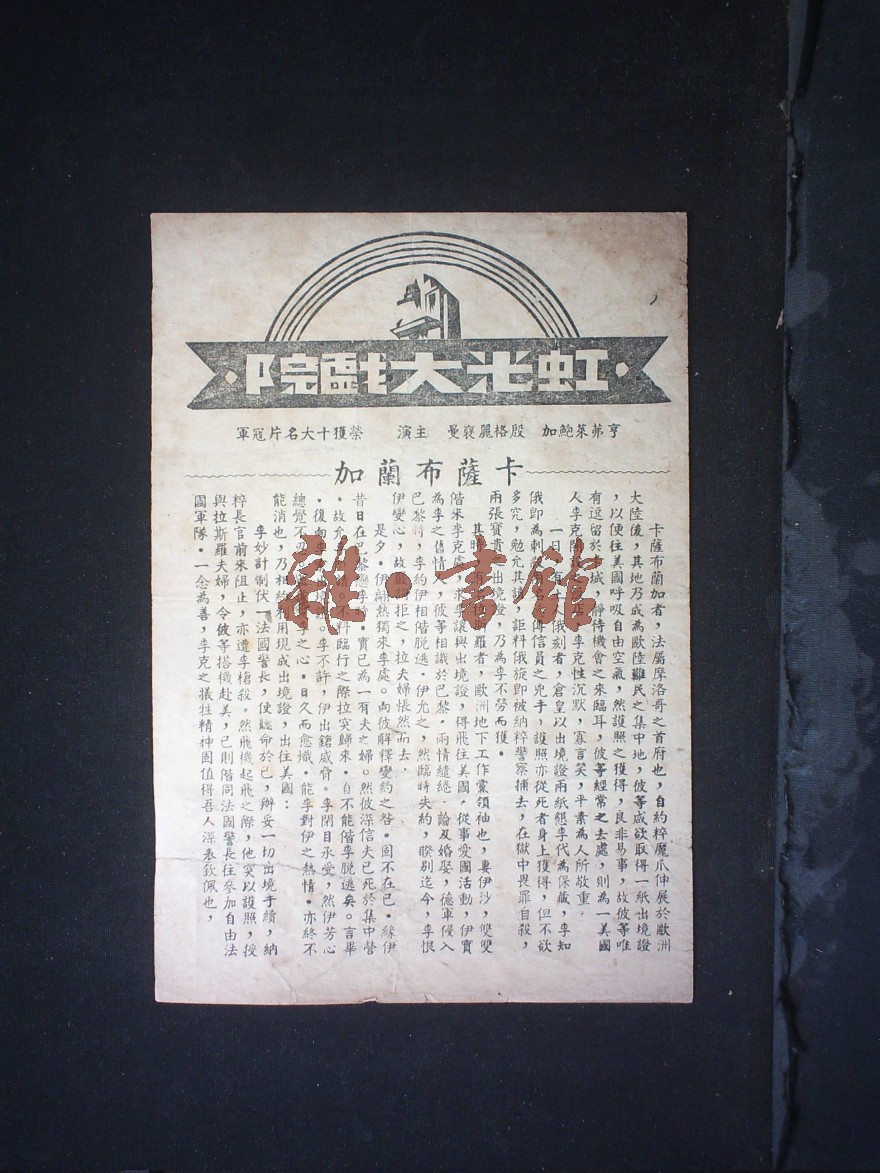 虹光大戲院
亨弗萊鮑加 殷格麗褒曼 主演 榮獲十大名片冠軍
卡薩布蘭加
卡薩布蘭加者，法屬摩洛哥之首府也，自約粹魔爪伸展於歐洲
大陸後，其地乃成為歐陸難民之集中地，彼等咸欲取得一紙出境證
，以便往美國呼吸自由空氣，然護照之獲得，良非易事，故彼等唯
有逗留於 城 靜待機會之來臨耳，彼等經常之去處，則為一美國
人李克 店，李克性沉默，寡言笑，平素為人所敬重．
一日 有 俄刻者，倉皇以出境證兩紙懇李代為保藏，李知
俄即為刺 傳信員之兇手，護照亦從死者身上獲得，但不欲
多究，勉允其請，詎料俄旋即被納粹警察捕去，在獄中畏罪自殺，
兩張寶貴之出境證，乃為李不勞而獲．
其時 羅者，歐洲地下工作黨領袖也，妻伊沙，雙雙
偕來李克處，求李讓與出境證，得飛往美國，從事愛國活動，伊實
為李之舊情人，彼等相識於巴黎．兩情繾綣．論及婚娶，德軍侵入
巴黎時，李約伊相偕脫逃．伊允之，然臨時失約，睽別迄今，李恨
伊變心，故嚴詞拒之，拉夫婦悵然而去．
是夕，伊 然獨來李處。向彼解釋變約之咎．固不在己．緣伊
昔日在巴黎戀李時，實已為一有夫之婦。然彼深信夫已死於集中營
．故允 不料臨行之際拉突歸來．自不能偕李脫逃矣。言畢
．復向李 。李不許，伊出鎗威脅。李閉目承受，然伊芳心
總覺不忍 李之心．日久而愈熾．能李對伊之熱情．亦終不
能消也，乃相約利用現成出境證，出往美國：
李妙計制伏一法國警長，使聽命於己，辦妥一切出境手續，納
粹長官前來阻止，亦遭李槍殺。然飛機起飛之際，他突以護照，授
與拉斯羅夫婦，令彼等搭機赴美，己則偕同法國警長往參加自由法
國軍隊．一念為善，李克之犧牲精神固值得吾人深表欽佩也，
雜·書館